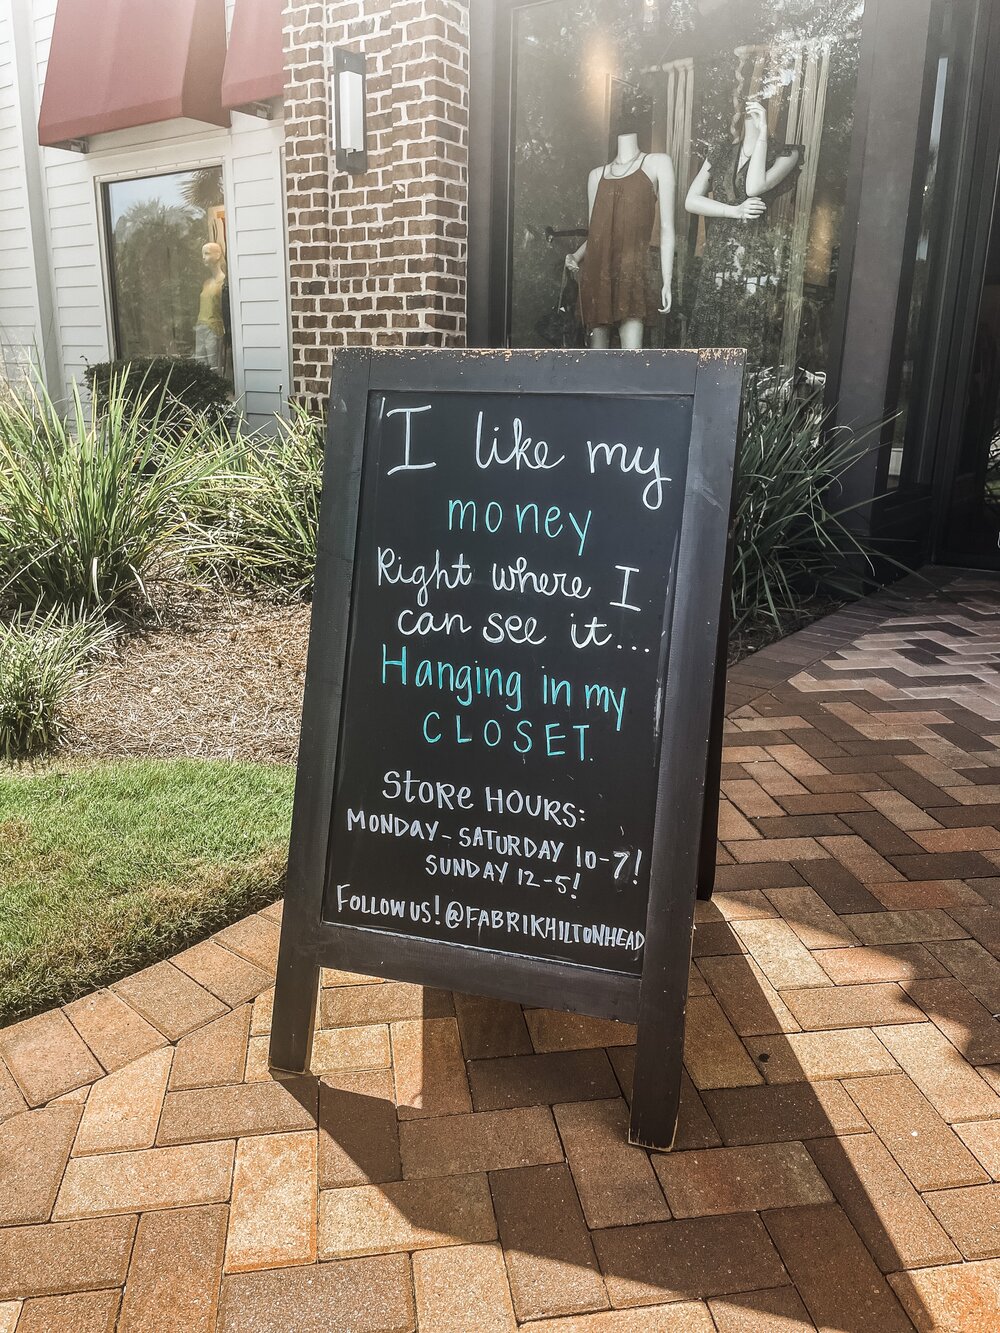 'I like my
money
Right where I
can see it...
Hanging in my
CLOSET.
STORE HOURS:
MONDAY-SATURDAY 10-7!
SUNDAY 12-5!
FOLLOW US! @FABRIKHILTONHEAD